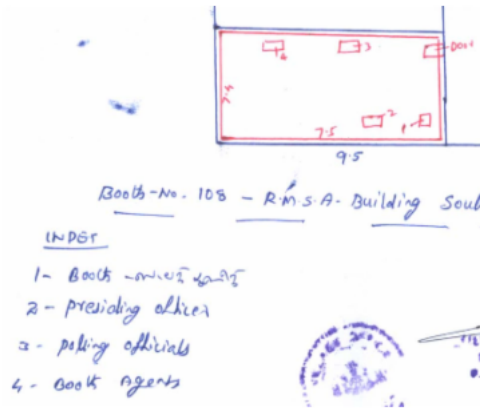 4
3
Door
2
1
7.5
9.5
Booth-No. 108 - R.M.S.A- Building Sout
INDEX
1- Booth
2- presiding officer
3- polling officials
4- Booth Agents